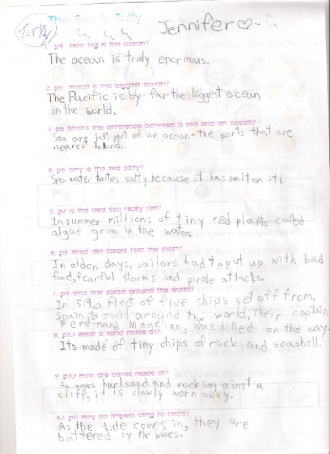 The Sea Is Salty
Jennifer
1. p4 How big is the ocean?
The ocean is truly enormous.
2. p5 Which is the biggest ocean?
The Pacific is by far the biggest ocean
in the world.
3. p5 What's the difference between a sea and an ocean?
Sea are just part of an ocean-the parts that are
nearest to land.
4. p6 Why is the sea salty?
Sea water tastes salty because it has salt on it!
5. p7 Is the Red Sea really red?
In summer millions of tiny red plants called
algae grow in the water.
6. p8 What did sailors fear the most?
In olden days, sailors had to put up with bad
food, fearful storms and pirate attacks.
7. p9 Who first sailed around the world?
In 1519 a fleet of five ships set off from
Spain to sail around the world. Their captain
Ferdinand Magellan, was killed on the way.
8. p10 What is sand made of?
Its made of tiny chips of rock and seashell.
9. p10 How are caves made of?
As waves hurl sand and rocks against a
cliff, it is slowly worn away.
10. p11 Why do limpets cling to rocks?
As the tide comes in, they are
battered by the waves.